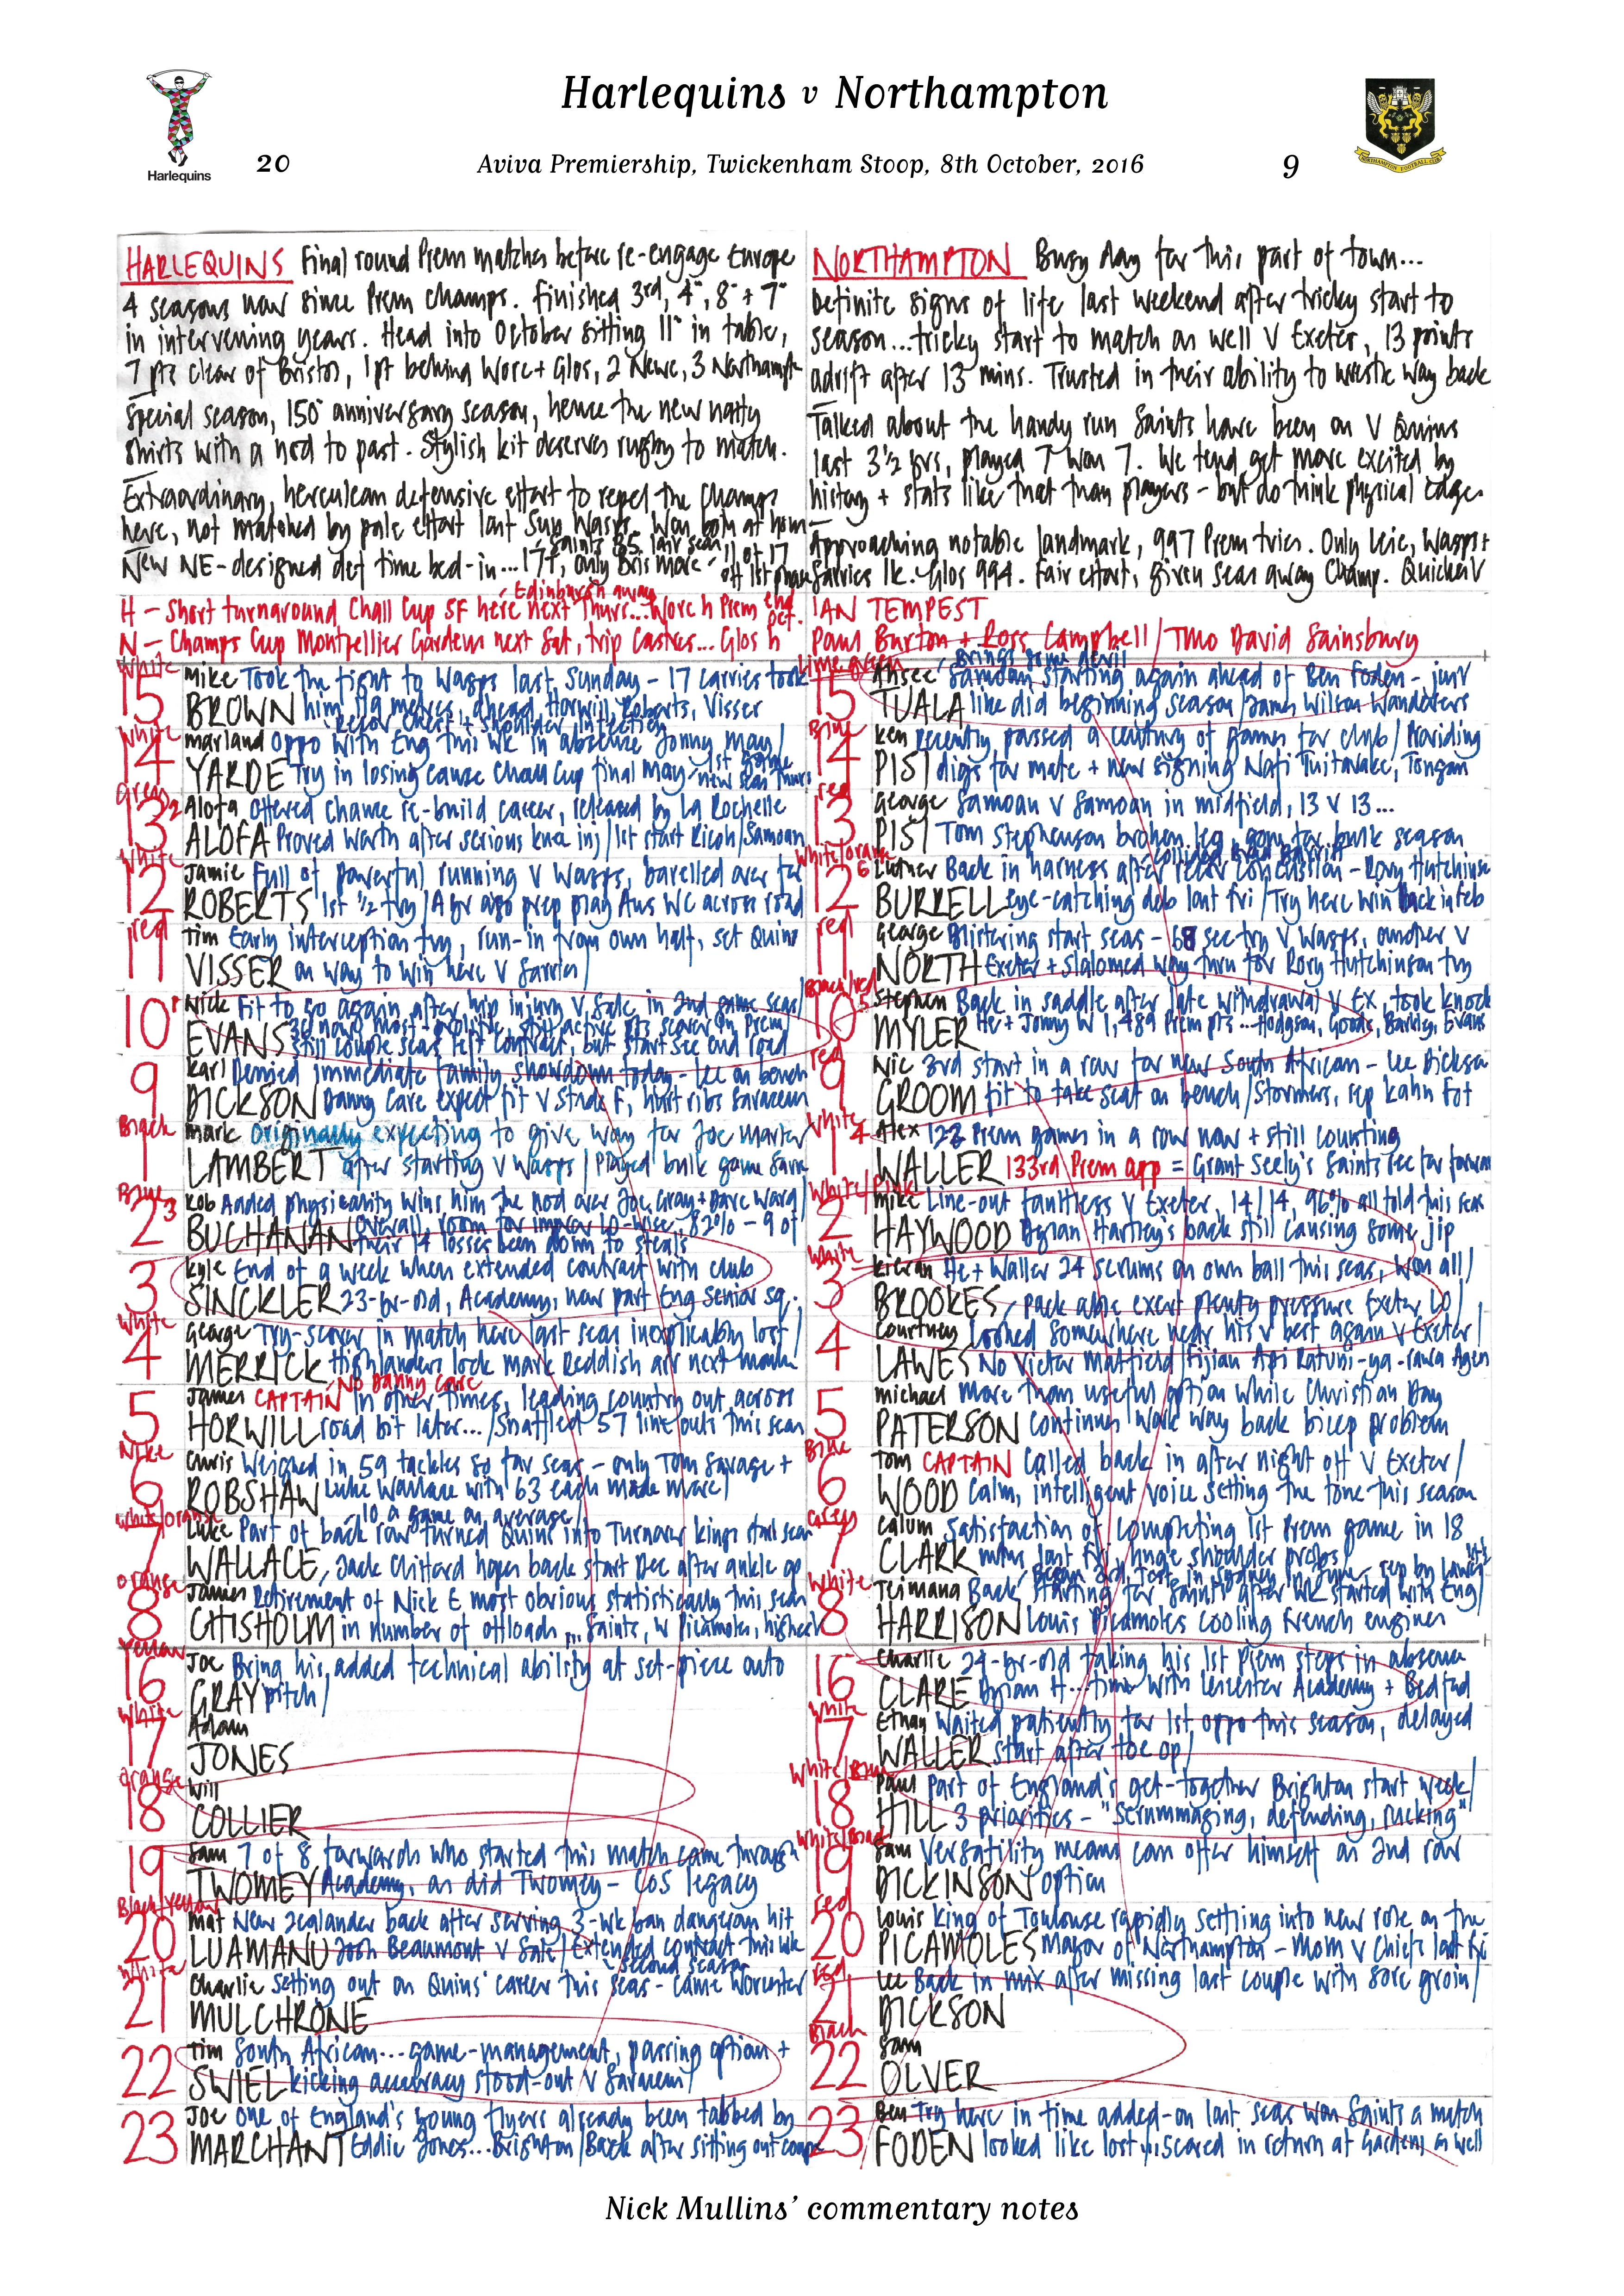 Harlequins v Northampton
Harlequins
20
Aviva Premiership, Twickenham Stoop, 8th October, 2016
9
NORTHAMPTON FOOTBALL CLUB
HARLEQUINS Final round Prem matches before re-engage Europe
4 seasons now since Prem champs. Finished 3rd, 4th, 8th + 7th
in intervening years. Head into October sitting 11th in table,
7 pts clear of Bristol, 1pt behind Worc + Glos, 2 Newc, 3 Northampton
Special season, 150th anniversary season, hence the new natty
shirts with a nod to past. Stylish kit deserves rugby to match.
Extraordinary, herculean defensive effort to repel the champs
here, not matched by pale effort last Sun Wasps. Won both at home
Saints 85 last seas
New NE-designed def time bed-in... 17t, only Bris more - 11 of 17
off 1st phase
Edinburgh away
H - Short turnaround Chall Cup SF here next Thurs... Worc h Prem end Oct.
N - Champs Cup Montpellier Gardens next Sat, trip Castres... Glos h
NORTHAMPTON Busy day for this part of town...
Definite signs of life last weekend after tricky start to
season... tricky start to match as well V Exeter, 13 points
adrift after 13 mins. Trusted in their ability to wrestle way back
Talked about the handy run Saints have been on V Quins
last 3½ yrs, played 7 won 7. We tend get more excited by
history + stats like that than players - but do think physical edge.
Approaching notable landmark, 997 Prem tries. Only Leic, Wasps +
Sarries 1k. Glos 994. Fair effort, given seas away Champ. Quicker V
IAN TEMPEST
Paul Burton + Ross Campbell / TMO David Sainsbury
White
15 Mike Took the fight to Wasps last Sunday - 17 carries took
BROWN him 119 metres, ahead Horwill, Roberts, Visser
Recov chest + shoulder infection
White
14 Marland Oppo with Eng this wk in absence Jonny May /
YARDE Try in losing cause Chall Cup final May / 1st game
new seas Thurs
Green
13 Alofa Offered chance re-build career, released by La Rochelle
ALOFA Proved worth after serious knee inj / 1st start Ricoh / Samoan
White
12 Jamie Full of powerful running V Wasps, barelled over for
ROBERTS 1st ½ try / A yr ago prep play Aus WC across road
red
11 Tim Early interception try, run-in from own half, set Quins
VISSER on way to win here V Sarries /
10 Nick Fit to go again after hip injury V Sale in 2nd game seas /
EVANS 36 now, most-prolific, still active pts scorer in Prem
Still couple seas left contract, but start see end road
9 Karl Denied immediate family showdown today - Lee on bench
DICKSON Danny Care expect fit V Stade F, hurt ribs Saracens
Black
1 Mark Originally expecting to give way for Joe Marler
LAMBERT after starting V Wasps / Played bulk game Sarrie
Blue
2 Rob Added physicality wins him the nod over Joe Gray + Dave Ward /
BUCHANAN Overall, room for improv LO-wise, 82% - 9 of
their 14 losses been down to steals
3 Kyle End of a week when extended contract with club
SINCKLER 23-yr-old, Academy, now part Eng Senior sq.
White
4 George Try-scorer in match here last seas inexplicably lost /
MERRICK Highlanders lock Mark Reddish arr next month
No Danny Care
5 James CAPTAIN In other times, leading country out across
HORWILL road bit later... / Snaffled 57 lineouts this seas
Nike
6 Chris Weighed in 59 tackles so far seas - only Tom Savage +
ROBSHAW Luke Wallace with 63 each made more /
10 a game on average
White/Orange
7 Luke Part of back row turned Quins into Turnover kings start seas
WALLACE, Jack Clifford hopes back start Dec after ankle op
Orange
8 James Retirement of Nick E most obvious statistically this seas
CHISHOLM in number of offloads... Saints, w Picamoles, highest
Yellow
16 Joe Bring his added technical ability at set-piece onto
GRAY pitch /
White
17 Adam
JONES
Orange
18 Will
COLLIER
19 Sam 7 of 8 forwards who started this match came through
TWOMEY Academy, as did Twomey - CoS legacy
Black/Yellow
20 Mat New Zealander back after serving 3-wk ban dangerous hit
LUAMANU Josh Beaumont V Sale / Extended contract this wk
second season
White
21 Charlie Setting out on Quins' career this seas - came Worcester
MULCHRONE
22 Tim South African... game-management, passing option +
SWIEL kicking accuracy stood-out V Saracens /
23 Joe One of England's young flyers already been tabbed by
MARCHANT Eddie Jones... Brighton / Back after sitting out couple
Lime green
Brings some devil
15 Ahsee Samoan starting again ahead of Ben Foden - just
TUALA like did beginning season / James Wilson Wanderers
Blue
14 Ken Recently passed a century of games for club / Providing
PISI digs for mate + new signing Nafi Tuitavake, Tongan
red
13 George Samoan V Samoan in midfield, 13 V 13...
PISI Tom Stephenson broken leg, gone for bulk season
collided Brad Barritt
White/Orange
12 Luther Back in harness after recov concussion - Rory Hutchinson
BURRELL eye-catching deb last Fri / Try here win back in Feb
red
11 George Blistering start seas - 68 sec try V Wasps, another V
NORTH Exeter + slalomed way thru for Rory Hutchinson try
Black/red
10 Stephen Back in saddle after late withdrawal V Ex, took knock
MYLER He + Jonny W 1,489 Prem pts... Hodgson, Goode, Barkley, Evans
red
9 Nic 3rd start in a row for new South African - Lee Dickson
GROOM fit to take seat on bench / Stormers, rep Kahn Fot
White
1 Alex 122 Prem games in a row now + still counting
WALLER 133rd Prem app = Grant Seely's Saints rec for forward
White/Pink
2 Mike Line-out faultless V Exeter, 14/14, 96% all told this seas
HAYWOOD Dylan Hartley's back still causing some jip
White
3 Kieran He + Waller 24 scrums on own ball this seas, won all /
BROOKES, Pack able exert plenty pressure Exeter LO /
4 Courtney Looked somewhere near his v best again V Exeter /
LAWES No Victor Matfield / Fijian Api Ratuni-ya-rawa Agen
5 Michael More than useful option while Christian Day
PATERSON continues work way back bicep problem
Blue
6 Tom CAPTAIN Called back in after night off V Exeter /
WOOD Calm, intelligent voice setting the tone this season
Green
7 Calum Satisfaction of completing 1st Prem game in 18
CLARK mths last Fri, huge shoulder probs /
White
8 Teimana Back starting for Saints after wk started with Eng /
HARRISON Louis Picamoles cooling French engines
16 Charlie 24-yr-old taking his 1st Prem steps in absence
CLARE Dylan H... time with Leicester Academy + Bedford
White
17 Ethan Waited patiently for 1st oppo this season, delayed
WALLER start after toe op /
White/Blue
18 Paul Part of England's get-together Brighton start week /
HILL 3 priorities - "Scrummaging, defending, rucking"
White/Black
19 Sam Versatility means can offer himself as 2nd row
DICKINSON option
red
20 Louis King of Toulouse rapidly settling into new role as the
PICAMOLES Mayor of Northampton - MoM V Chiefs last Fri
Red
21 Lee Back in mix after missing last couple with sore groin /
DICKSON
Black
22 Sam
OLVER
23 Ben Try here in time added-on last seas won Saints a match
FODEN looked like lost... scored in return at Gardens as well
Nick Mullins' commentary notes